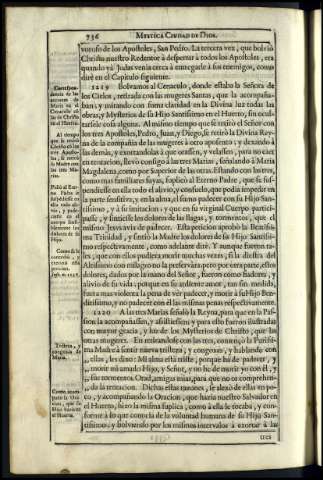 736 MYSTICA CIUDAD DE DIOS.
voroso de los Apostoles, San Pedro. La tercera vez, que bolviò
Christo nuestro Redentor à despertar à todos los Apostoles, era
quando yà Judas venìa cerca à entregarle à sus enemigos, como
dirè en el Capitulo siguiente.
1219 Bolvamos al Cenaculo, donde estaba la Señora de
los Cielos, retirada con las mugeres Santas, que la acompaña-
ban; y mirando con suma claridad en la Divina luz todas las
obras, y Mysterios de su Hijo Santissimo en el Huerto, sin ocul-
tarsele cosa alguna. Al mismo tiempo que se retirò el Señor con
los tres Apostoles, Pedro, Juan, y Diego, se retirò la Divina Rey-
na de la compañia de las mugeres à otro aposento; y dexando à
las demàs, y exortandolas à que orassen, y velassen, para no caer
en tentacion, llevò consigo à las tres Marias, señalando à Maria
Magdalena, como por Superior de las otras. Estando con las tres,
como mas familiares suyas, suplicò al Eterno Padre, que se sus-
pendiesse en ella todo el alivio, y consuelo, que podia impedir en
la parte sensitiva, y en la alma, el sumo padecer con su Hijo San-
tissimo, y à su imitacion; y que en su virginal Cuerpo partici-
passe, y sintiesse los dolores de las llagas, y tormentos, que el
mismo Jesus avìa de padecer. Esta peticion aprobò la Beatis-
sima Trinidad, y sintiò la Madre los dolores de su Hijo Santissi-
mo respectivamente, como adelante dirè. Y aunque fueron ta-
les, que con ellos pudiera morir muchas veces, si la diestra del
Altissimo con milagro no la preservàra; pero por otra parte, estos
dolores, dados por la mano del Señor, fueron como fiadores, y
alivio de su vida; porque en su ardiente amor, tan sin medida,
fuera mas violenta la pena de vèr padecer, y morir à su Hijo Ben-
ditissimo, y no padecer con èl las mismas penas respectivamente.
1220 A las tres Marias señalò la Reyna, para que en la Pas-
sion la acompañassen, y assistiessen; y para esto fueron ilustradas
con mayor gracia, y luz de los Mysterios de Christo, que las
otras mugeres. En retirandose con las tres, començò la Purissi-
ma Madre à sentir nueva tristeza, y congoxas, y hablando con
ellas, les dixo: Mi alma està triste, porque ha de padecer, y
morir mi amado Hijo, y Señor, y no he de morir yo con èl, y
sus tormentos. Orad, amigas mias, para que no os comprehen-
da la tentacion. Dichas estas razones, se alexò de ellas un po-
co, y acompañando la Oracion, que hazia nuestro Salvador en
el Huerto, hizo la misma suplica, como à ella le tocaba, y con-
forme à lo que conocia de la voluntad humana de su Hijo San-
tissimo; y bolviendo por los mismos intervalos à exortar à las
tres
Al tiempo
que se retirò
Christo con
los tres Apos-
toles, se retirò
la Madre con
las tres Ma-
rias.
Pidiò al Eter-
no Padre
Tristeza, y
congoxa de
Maria.